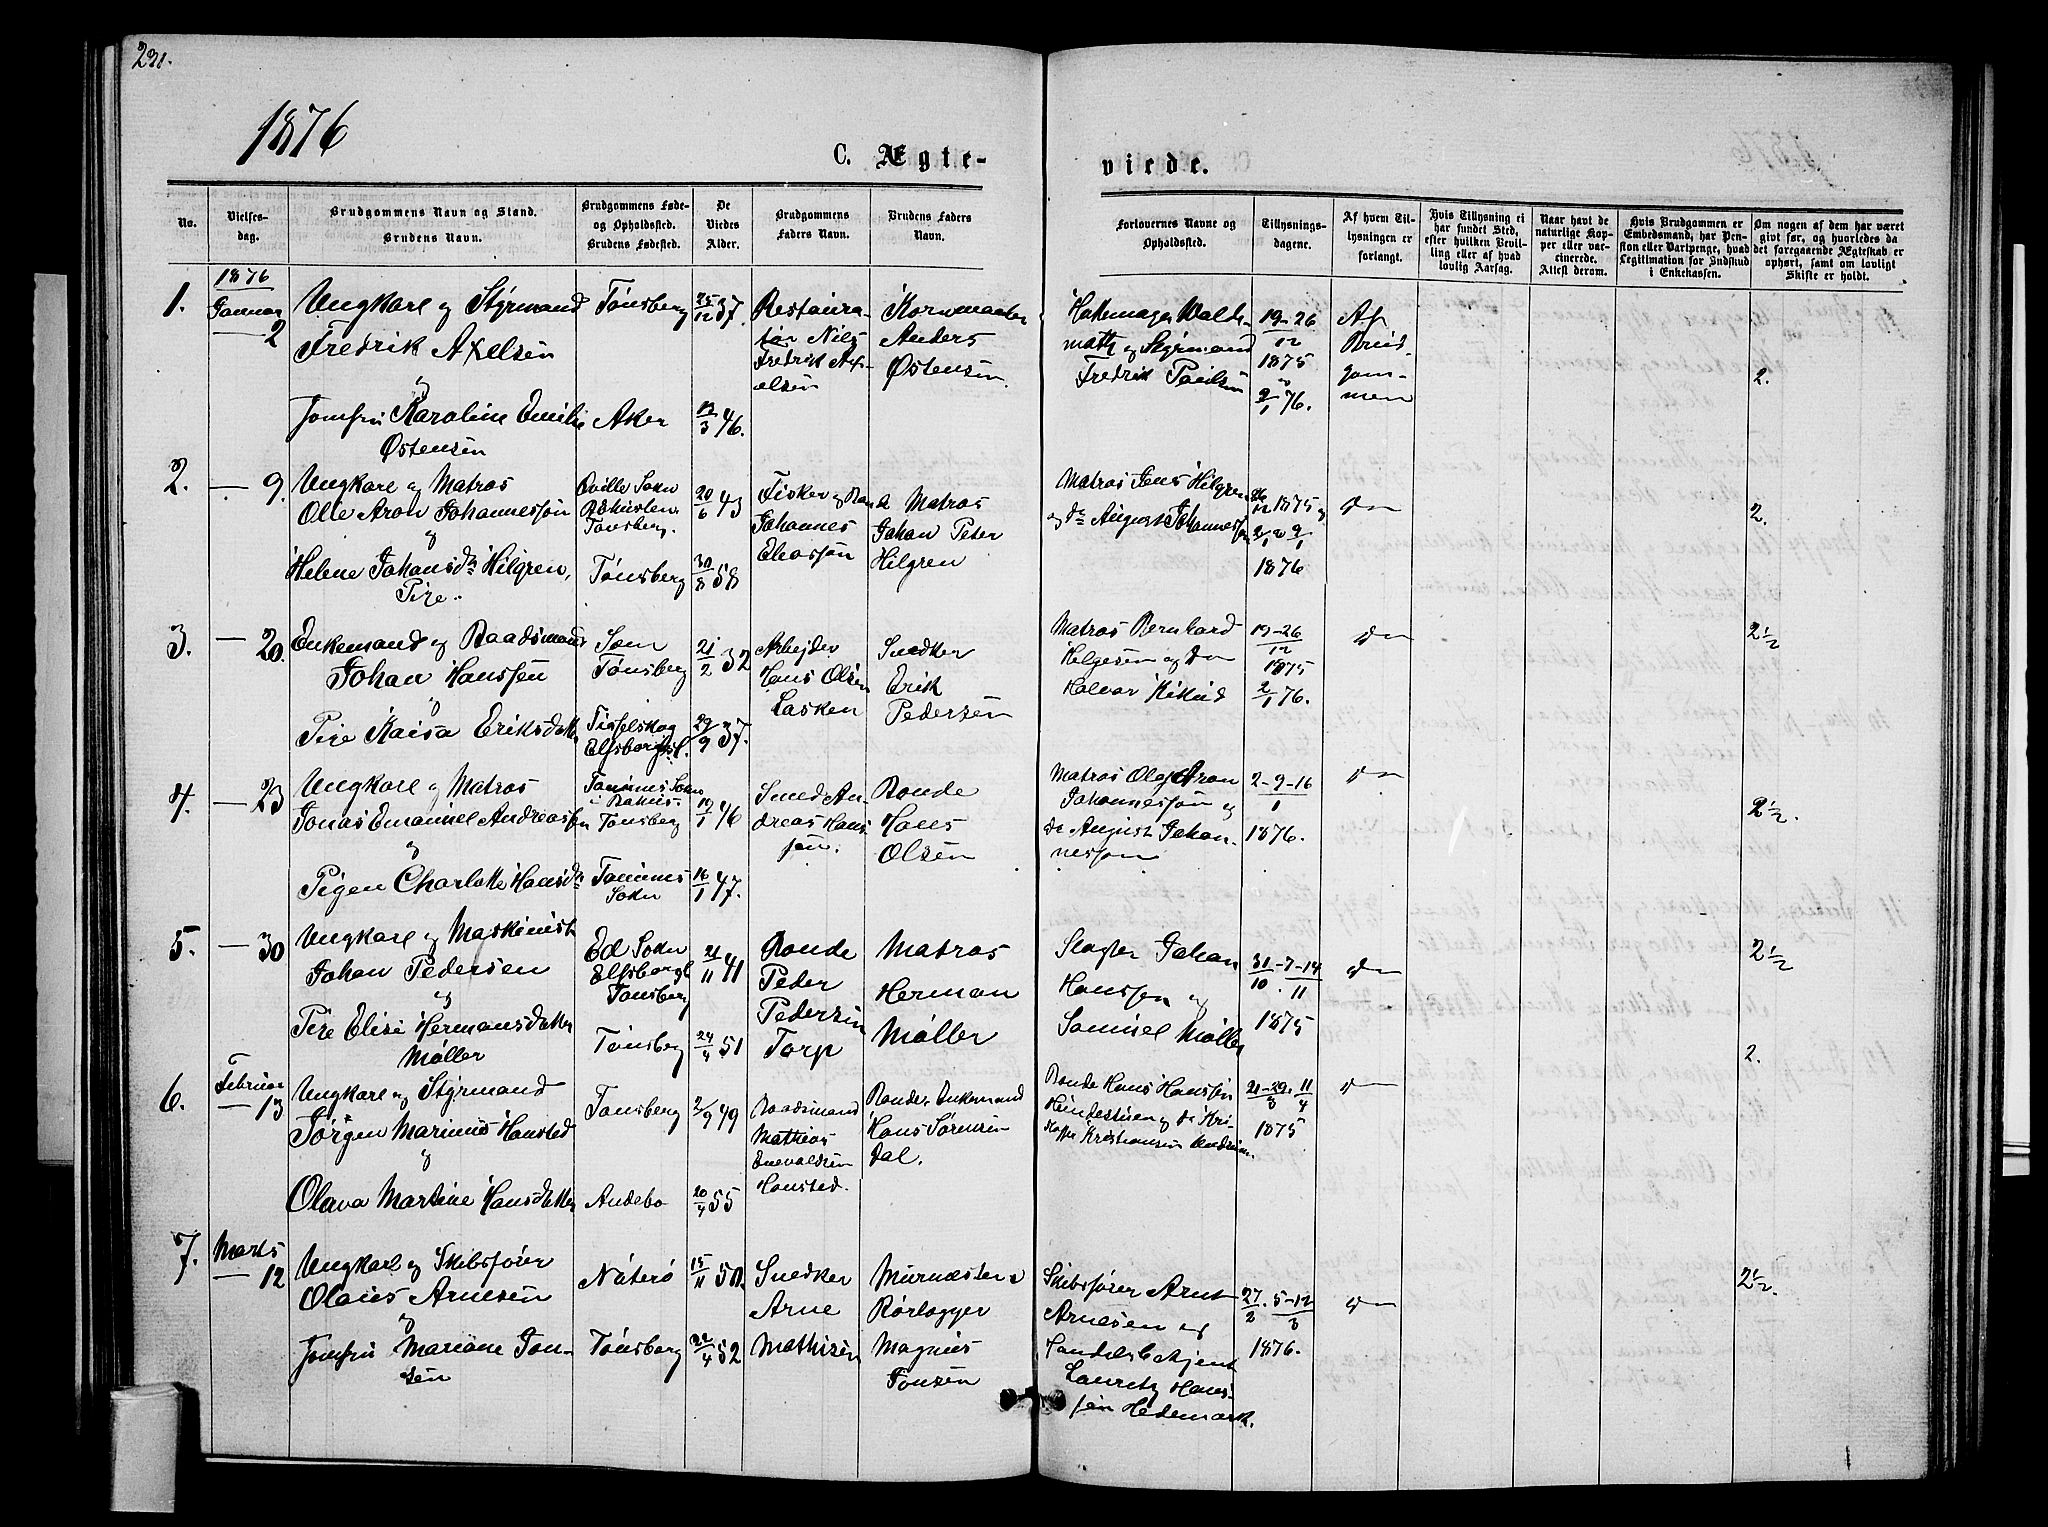 231.
1876
C. Ægte-
viede.
No.
Vielses-
dag.
Brudgommens Navn og Stand.
Brudens Navn.
Brudgommens Føde-
og Opholdssted.
Brudens Fødested.
De
Viedes
Alder.
Brudgommens
Faders Navn.
Brudens Faders
Navn.
Forlovernes Navne og
Opholdssted.
Tillysnings-
dagene.
Af hvem Til-
lysningen er
forlangt.
Hvis Tillysning ei
har fundet Sted,
efter hvilken Bevil-
ling eller af hvad
lovlig Aarsag.
Naar havt de
naturlige Kop-
per eller vac-
cinerede.
Attest derom.
Hvis Brudgommen er
Embedsmand, har Pen-
sion eller Vartpenge, hvad
Legitimation for Indskud
i Enkekassen.
Om nogen af dem har været
givt før, og hvorledes da
det foregaaende Ægteskab er
ophørt, samt om lovligt
Skifte er holdt.
1.
1876
Januar
2
Ungkarl og Styrmand
Fredrik Axelsen
og
Jomfru Karoline Emilie
Østensen
Tønsberg
Aker
25/12 37.
12/3 46.
Restaura-
tør Nils
Fredrik Ax-
elsen
Anders
Østensen.
Hattemager Walde-
math og Styrmand
Fredrik Paulsen
19-26
12
1875
og
2/1 76.
Af
Brud-
gom-
men
2.
2.
— 9.
Ungkarl og Matros
Olle Aron Johannessøn
og
Helene Johansdr Hilgren,
Pige.
Qville Sokn
Tønsberg.
Tønsberg
20/6 43
30/8 58
Fisker og
Johannes
Matros
Johan Peter
Hilgren
Matros Jens Hilgren
og do August Johannessøn
26/12 1875 og
2/1 9/1
1876
do
2.
3.
— 20.
Enkemand og Baadsmand
Johan Hanssen
og
Pige Kaisa Eriksdatter
Sem
Tønsberg
Tisselskog
Elfsborgsl.
21/2 32
29/9 37.
Arbejder
Hans Olsen
Lasken
Snedker
Erik
Pedersen
Matros Bernhard
Helgesen og do
Halvor
19-26
12
1875
2/1 76.
do
2½
4.
— 23
Ungkarl og Matros
Jonas Emanuel Andreassen
og
Pigen Charlotte Hansdr
Tanums Sokn
i Bahus
Tønsberg
Tanums
Sokn
19/1 46
16/1 47.
Smed An-
dreas Hans-
sen.
Bonde
Hans
Olsen
Matros Ole Aron
Johannessøn og
do August Johan-
nessøn
2-9-16
1
1876.
do
2½.
5.
— 30
Ungkarl og Maskinist
Johan Pedersen
og
Pige Elise Hermansdatter
Møller
Ed Sokn
Elfsborgsl
Tønsberg
Tønsberg
21/11 41
24/4 51
Bonde
Peder
Pedersen
Torp
Matros
Herman
Møller
Slagter Johan
Hanssen og
Samuel Møller
31/10 - 7-14/11
1875
do
2½
6.
Februar
— 13
Ungkarl og Styrmand
Jørgen Marinius Hansted
og
Olava Martine Hansdatter
Tønsberg
Andebo
2/9 49
20/4 55
Baadsmand
Mathias
Enevaldsen
Hansted.
Bonde Enkemand
Hans Sørensen
Dal.
Bonde Hans Hanssen
og do Kri-
stoffer Kristiansen
21-29/3 11/4
1875
do
2.
7.
Marts
— 12
Ungkarl og Skibsfører
Olaus Arnesen
og
Jomfru Mariane Jon-
sen
Nøterø
Tønsberg
15/11 50.
22/4 52
Snedker
Arne
Mathisen
Murmester &
Rørlægger
Magnus
Jonsen
Skibsfører Arnt
Arnesen og
Handelsbetjent
Lauritz Hans-
sen Hedemark.
27/2. 5-12/3
1876.
do
2½.